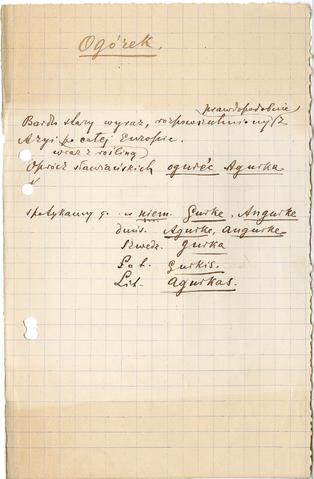 Ogórek.
prawdopodobnie
Bardzo stary wyraz, rozpowszechniony (z
Azyi po całej Europie.
wraz z rośliną)
Oprócz słowiańskich ogurěc Agurka
spotykamy go w niem. Gurke, Angurke
duńs. Agurke, angurke
Szwedz. gurka
Łot. Gurkis.
Lit. agurkas.